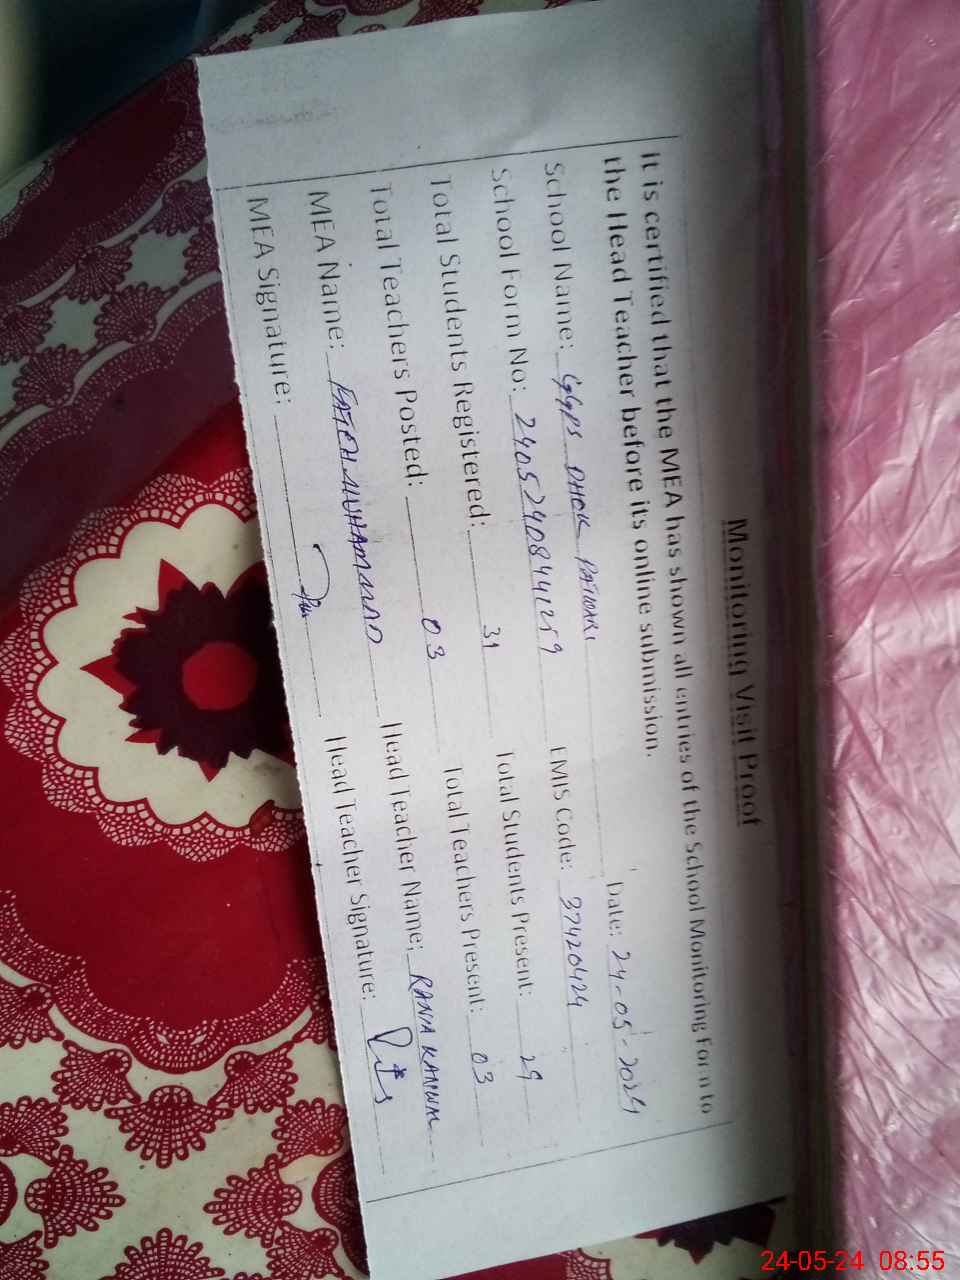 Monitoring Visit Proof
It is certified that the MEA has shown all entries of the School Monitoring Form to
the Head Teacher before its online submission.
School Name: GGPS DHOK PATWARI Date: 24-05-2024
School Form No: 24052408441259 EMIS Code: 37420424
Total Students Registered: 31 Total Students Present: 29
Total Teachers Posted: 03 Total Teachers Present: 03
MEA Name: FATEH MUHAMMAD Head Teacher Name: RANIA KANWAL
MEA Signature: Head Teacher Signature:
24-05-24 08:55